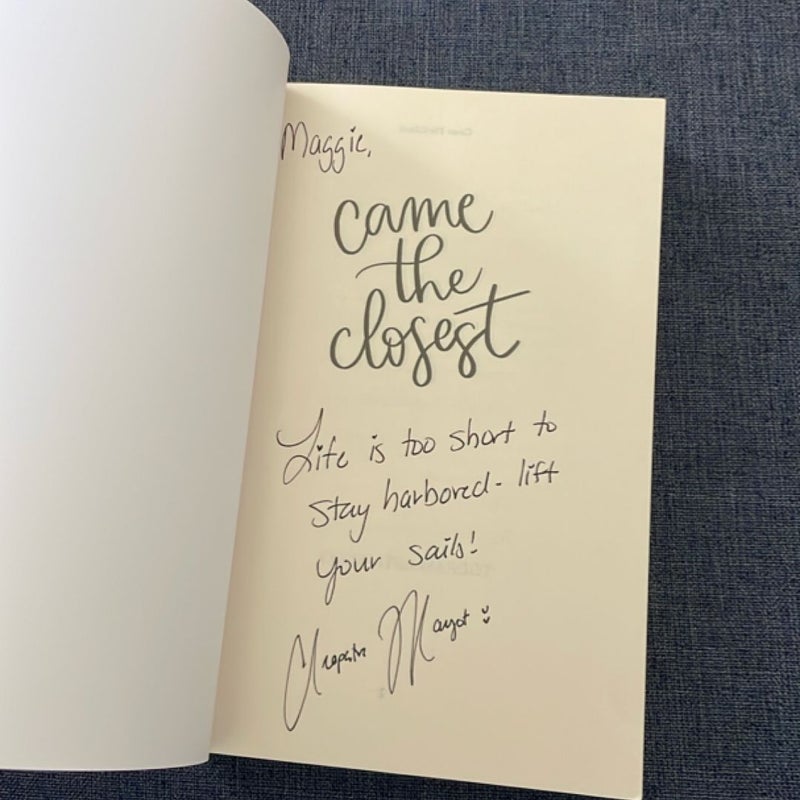 Maggie,
came
the
closest
Life is too short to
stay harbored - lift
your sails!
Mayot